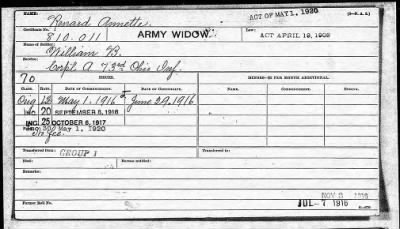 NAME:
Renard Annette
ACT OF MAY 1, 1920
Certificate No.
810.011
ARMY WIDOW
Law:
ACT APRIL 19, 1908
Name of Soldier:
William B.
Service:
Corpl. A 73rd Ohio Inf.
70
ISSUES.
Class. Rate. Date of Commencement. Date of Certificate.
Orig 12 May 1, 1916 June 29, 1916
INC. 20 SEPTEMBER 8, 1916
INC. 25 OCTOBER 6, 1917
30 May 1, 1920
Transferred from: GROUP 1
Transferred to:
Died:
Bureau notified:
Remarried:
NOV 3 1916
Former Roll No.
JUL 7 1916